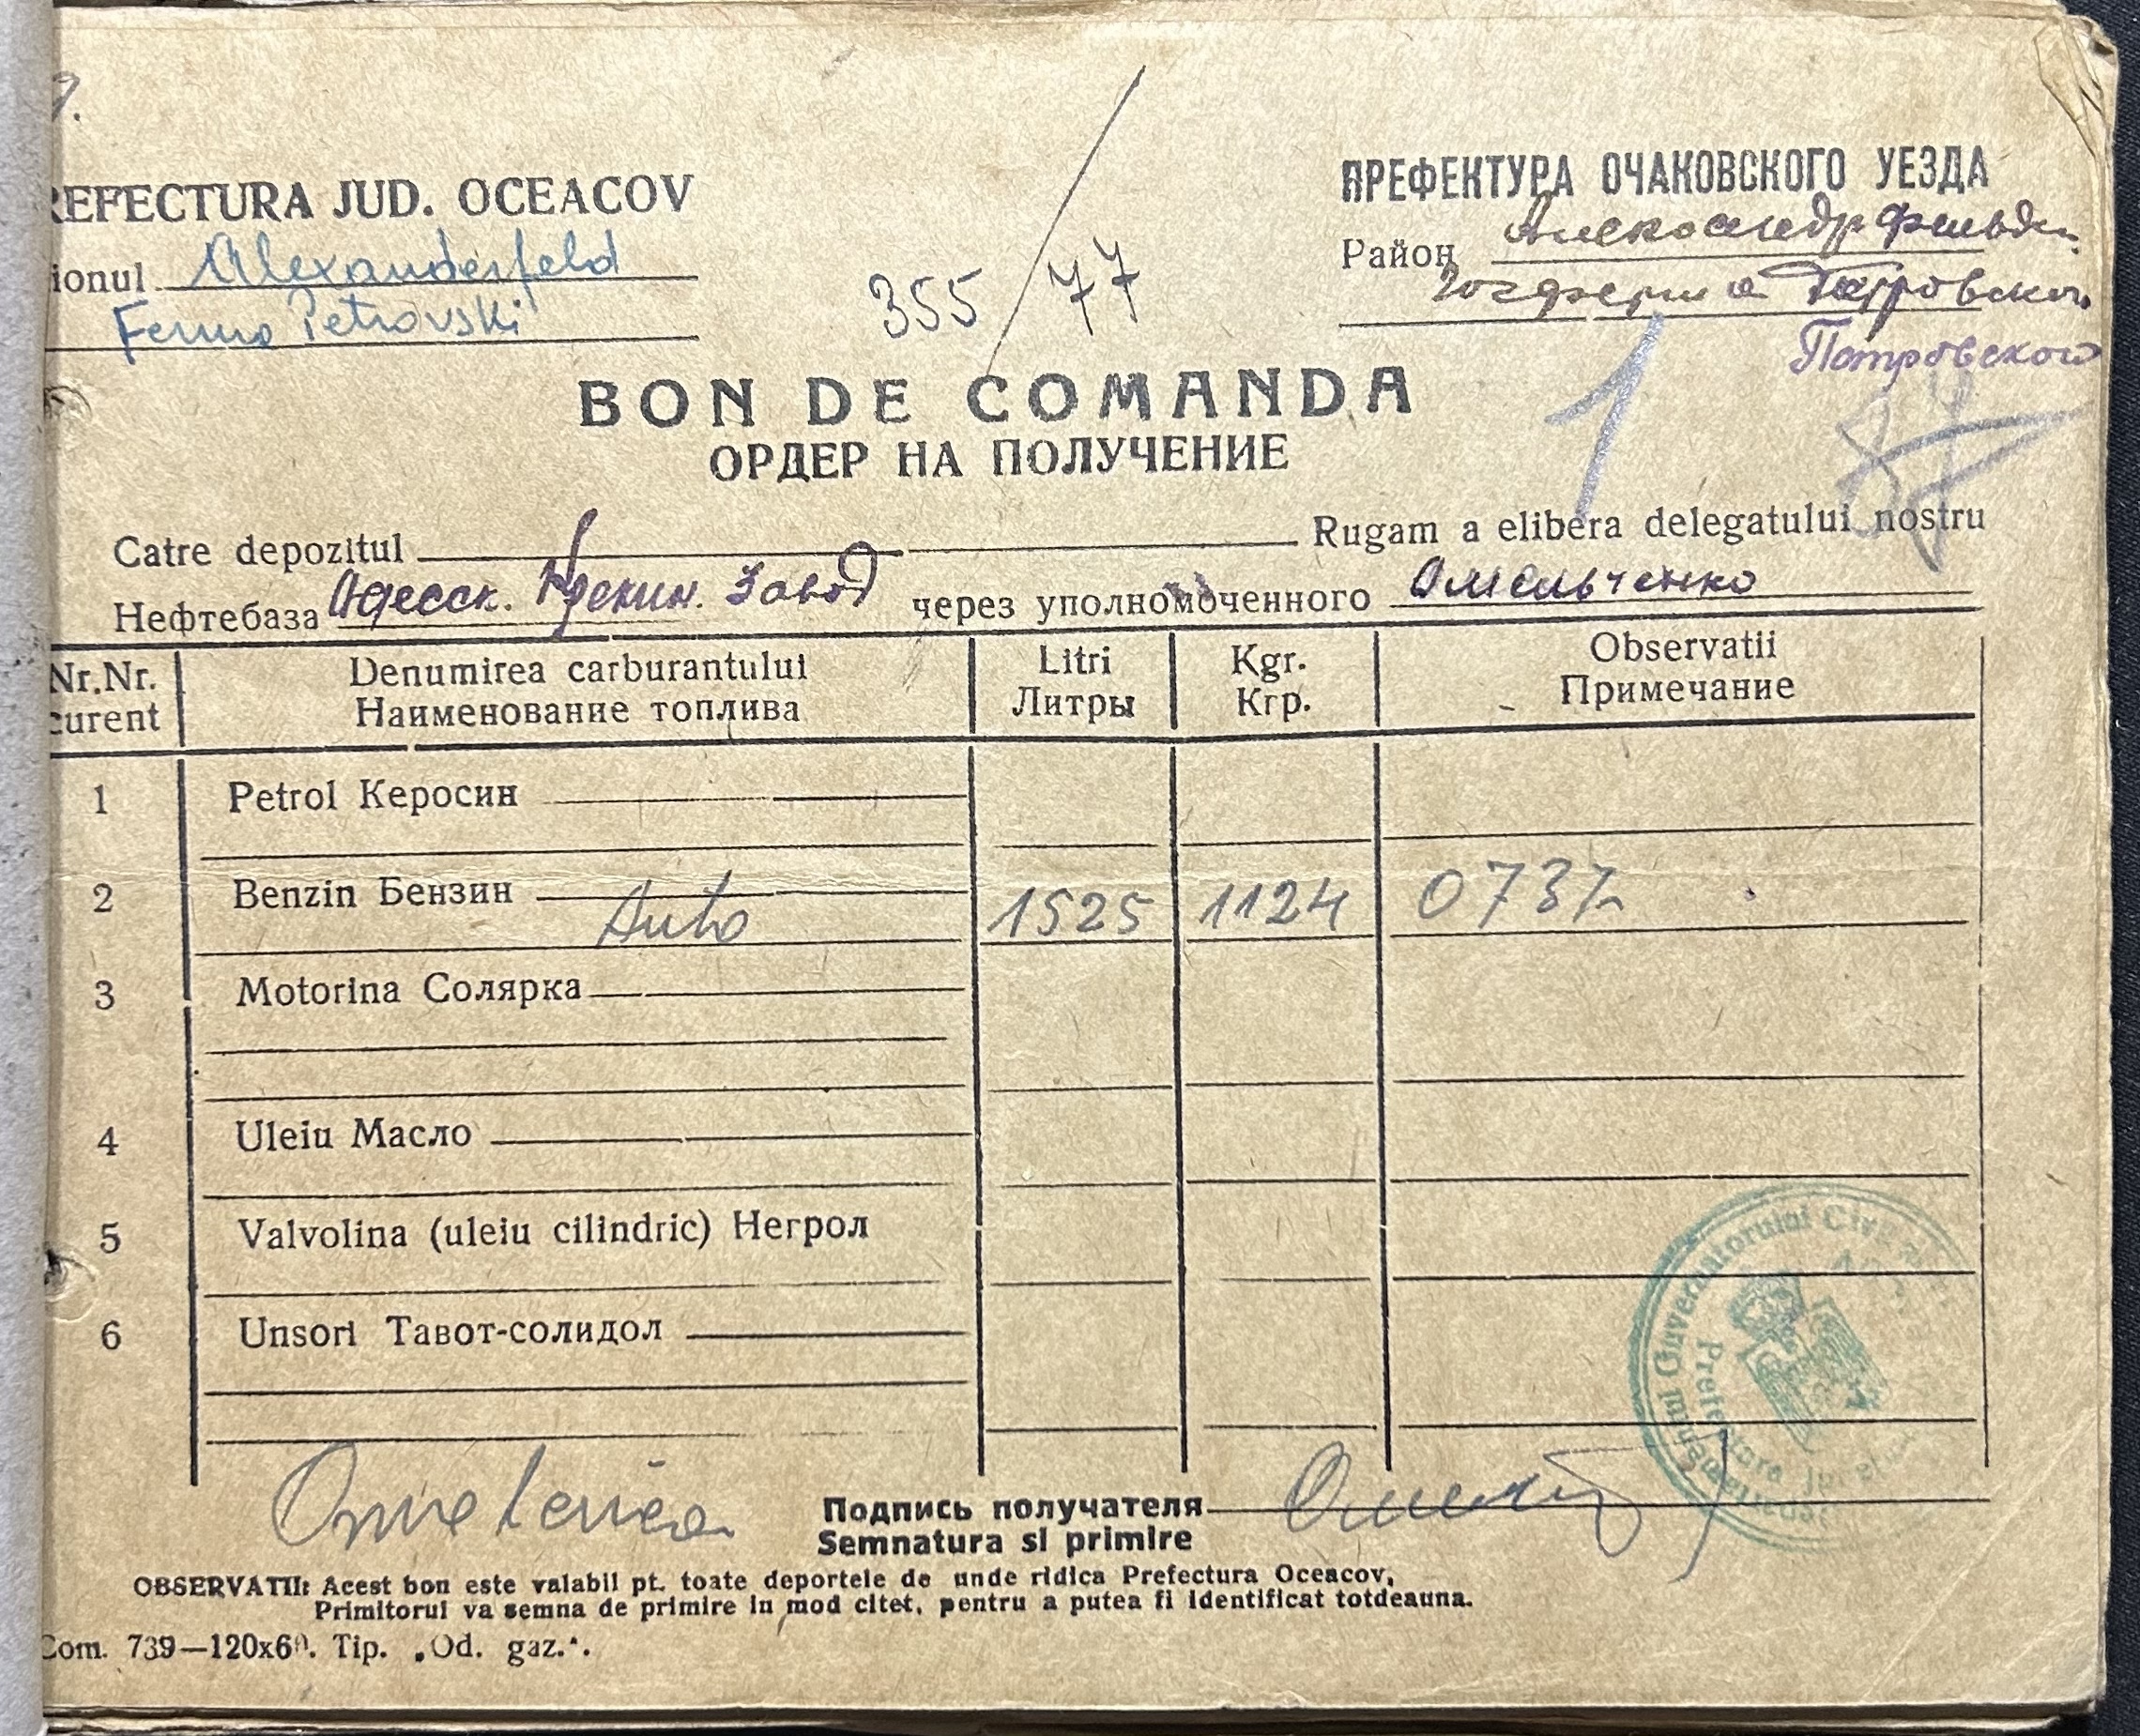 REFECTURA JUD. OCEACOV
ionul Alexanderfeld
Ferma Petrovski
355/77
ПРЕФЕКТУРА ОЧАКОВСКОГО УЕЗДА
Район Александрфельд
Госферма Петровского
Петровского
BON DE COMANDA
ОРДЕР НА ПОЛУЧЕНИЕ
1
Catre depozitul Rugam a elibera delegatului nostru
Нефтебаза Одесск. Крекин. Завод через уполномоченного Омельченко
Nr.Nr. curent Denumirea carburantului Litri Kgr. Observatii
Наименование топлива Литры Кгр. Примечание
1 Petrol Керосин
2 Benzin Бензин Auto 1525 1124 0737
3 Motorina Солярка
4 Uleiu Масло
5 Valvolina (uleiu cilindric) Негрол
6 Unsori Тавот-солидол
Guvernatorului Civil
Prefectura
Подпись получателя
Semnatura si primire
OBSERVATII: Acest bon este valabil pt. toate deportele de unde ridica Prefectura Oceacov,
Primitorul va semna de primire in mod citet, pentru a putea fi identificat totdeauna.
Com. 739—120x60. Tip. „Od. gaz.".